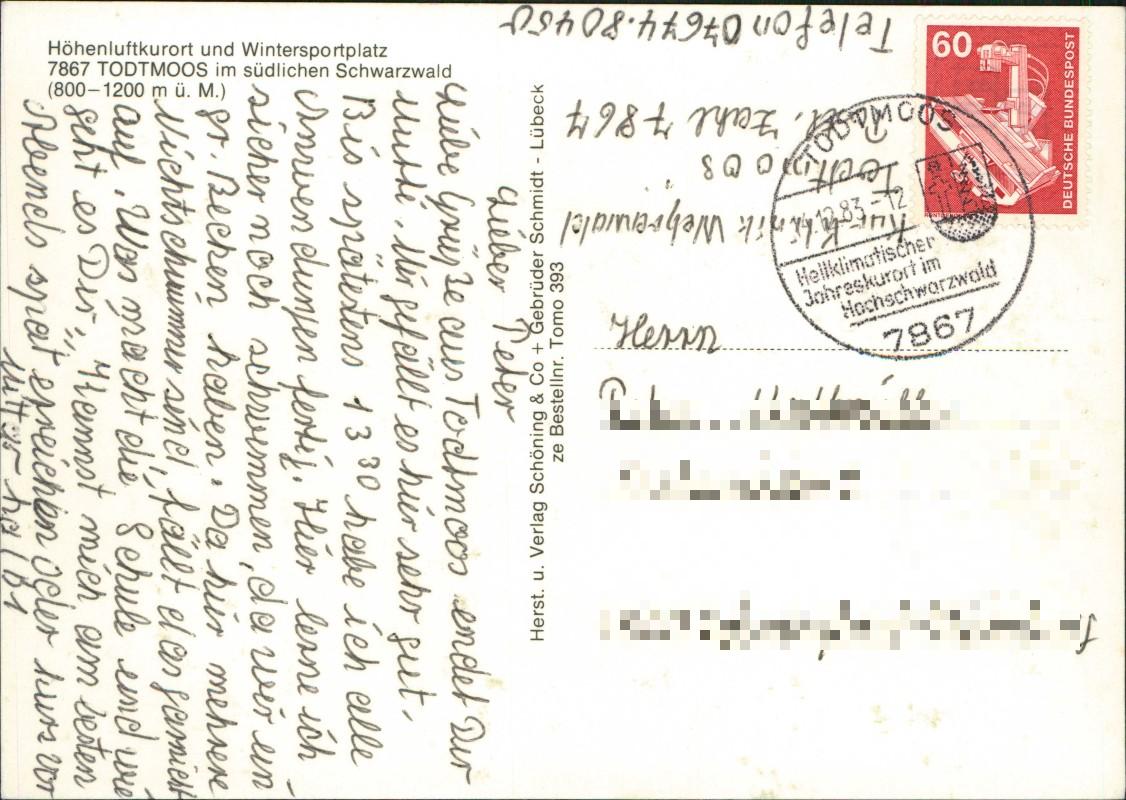 Höhenluftkurort und Wintersportplatz
7867 TODTMOOS im südlichen Schwarzwald
(800–1200 m ü. M.)
Lieber Peter
Liebe Grüße aus Todtmoos sendet Dir
Mutti. Mir gefällt es hier sehr gut.
Bis spätestens 13 30 habe ich alle
Anwendungen fertig. Hier lerne ich
sicher noch schwimmen, da wir ein
gr. Becken haben. Da hier mehrere
Nichtschwimmer sind, fällt das garnicht
auf. Was macht die Schule und wie
geht es Dir? Kannst mich am besten
Abends spät ereichen oder kurz vor
Herst. u. Verlag Schöning & Co + Gebrüder Schmidt - Lübeck
ze Bestellnr. Tomo 393
Kur-Klinik Wehrawald
Todtmoos
Pl. Zahl 7867
Telefon 07674.80450
60
DEUTSCHE BUNDESPOST
TODTMOOS
12.83.-12
Heilklimatischer
Jahreskurort im
Hochschwarzwald
7867
Herrn